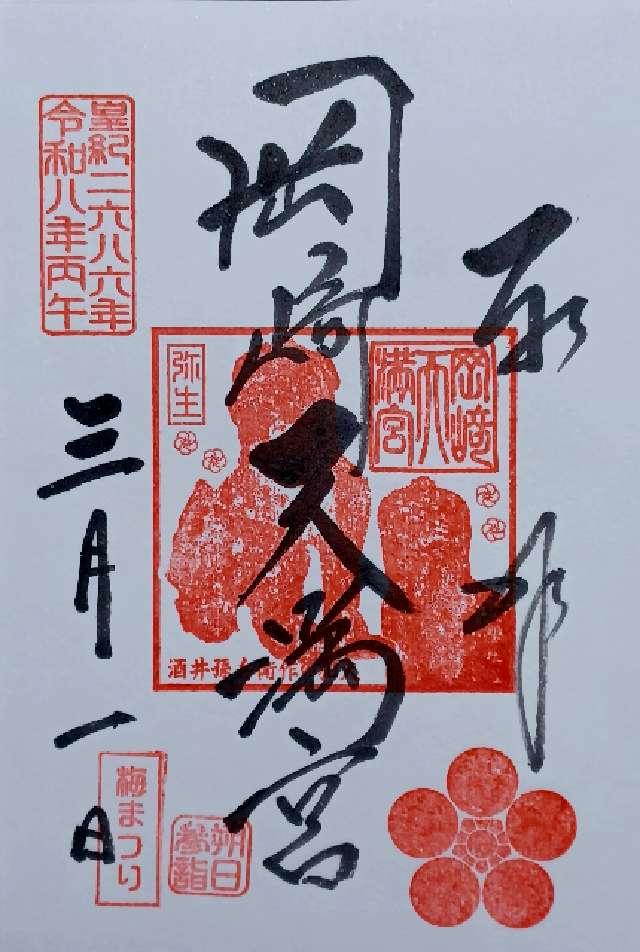 奉拝
岡崎天満宮
三月一日
皇紀二六八六年
令和八年丙午
岡﨑
天
満宮
弥生
酒井孫兵衛作
梅まつり
朔日
参詣